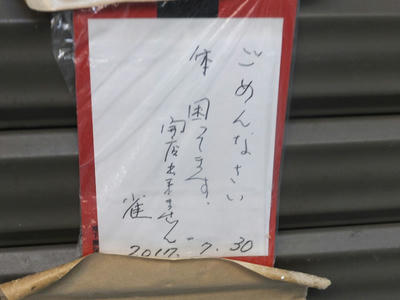 ごめんなさい
体 困ってます.
開店出来ません
雀
2017.7.30